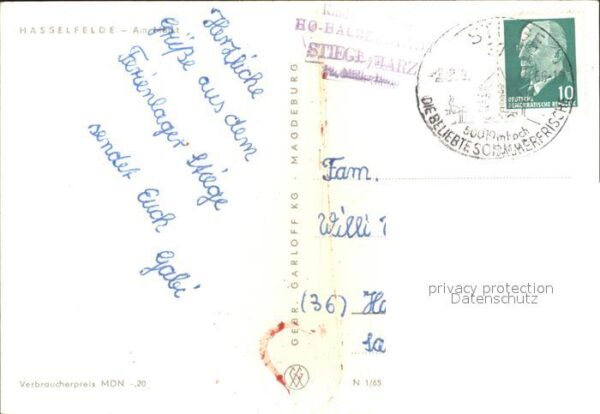 HASSELFELDE – Am
Herzliche
Grüße aus dem
Ferienlager Stiege
sendet Euch
Gabi
Verbraucherpreis MDN -,20
GEBR. GARLOFF KG · MAGDEBURG
N 1/65
HO-
STIEGE HARZ
500 m hoch
DIE BELIEBTE SOMMERFRISCHE
10
DEUTSCHE
DEMOKRATISCHE REPUBLIK
Fam.
Willi
(36) Ha
privacy protection
Datenschutz